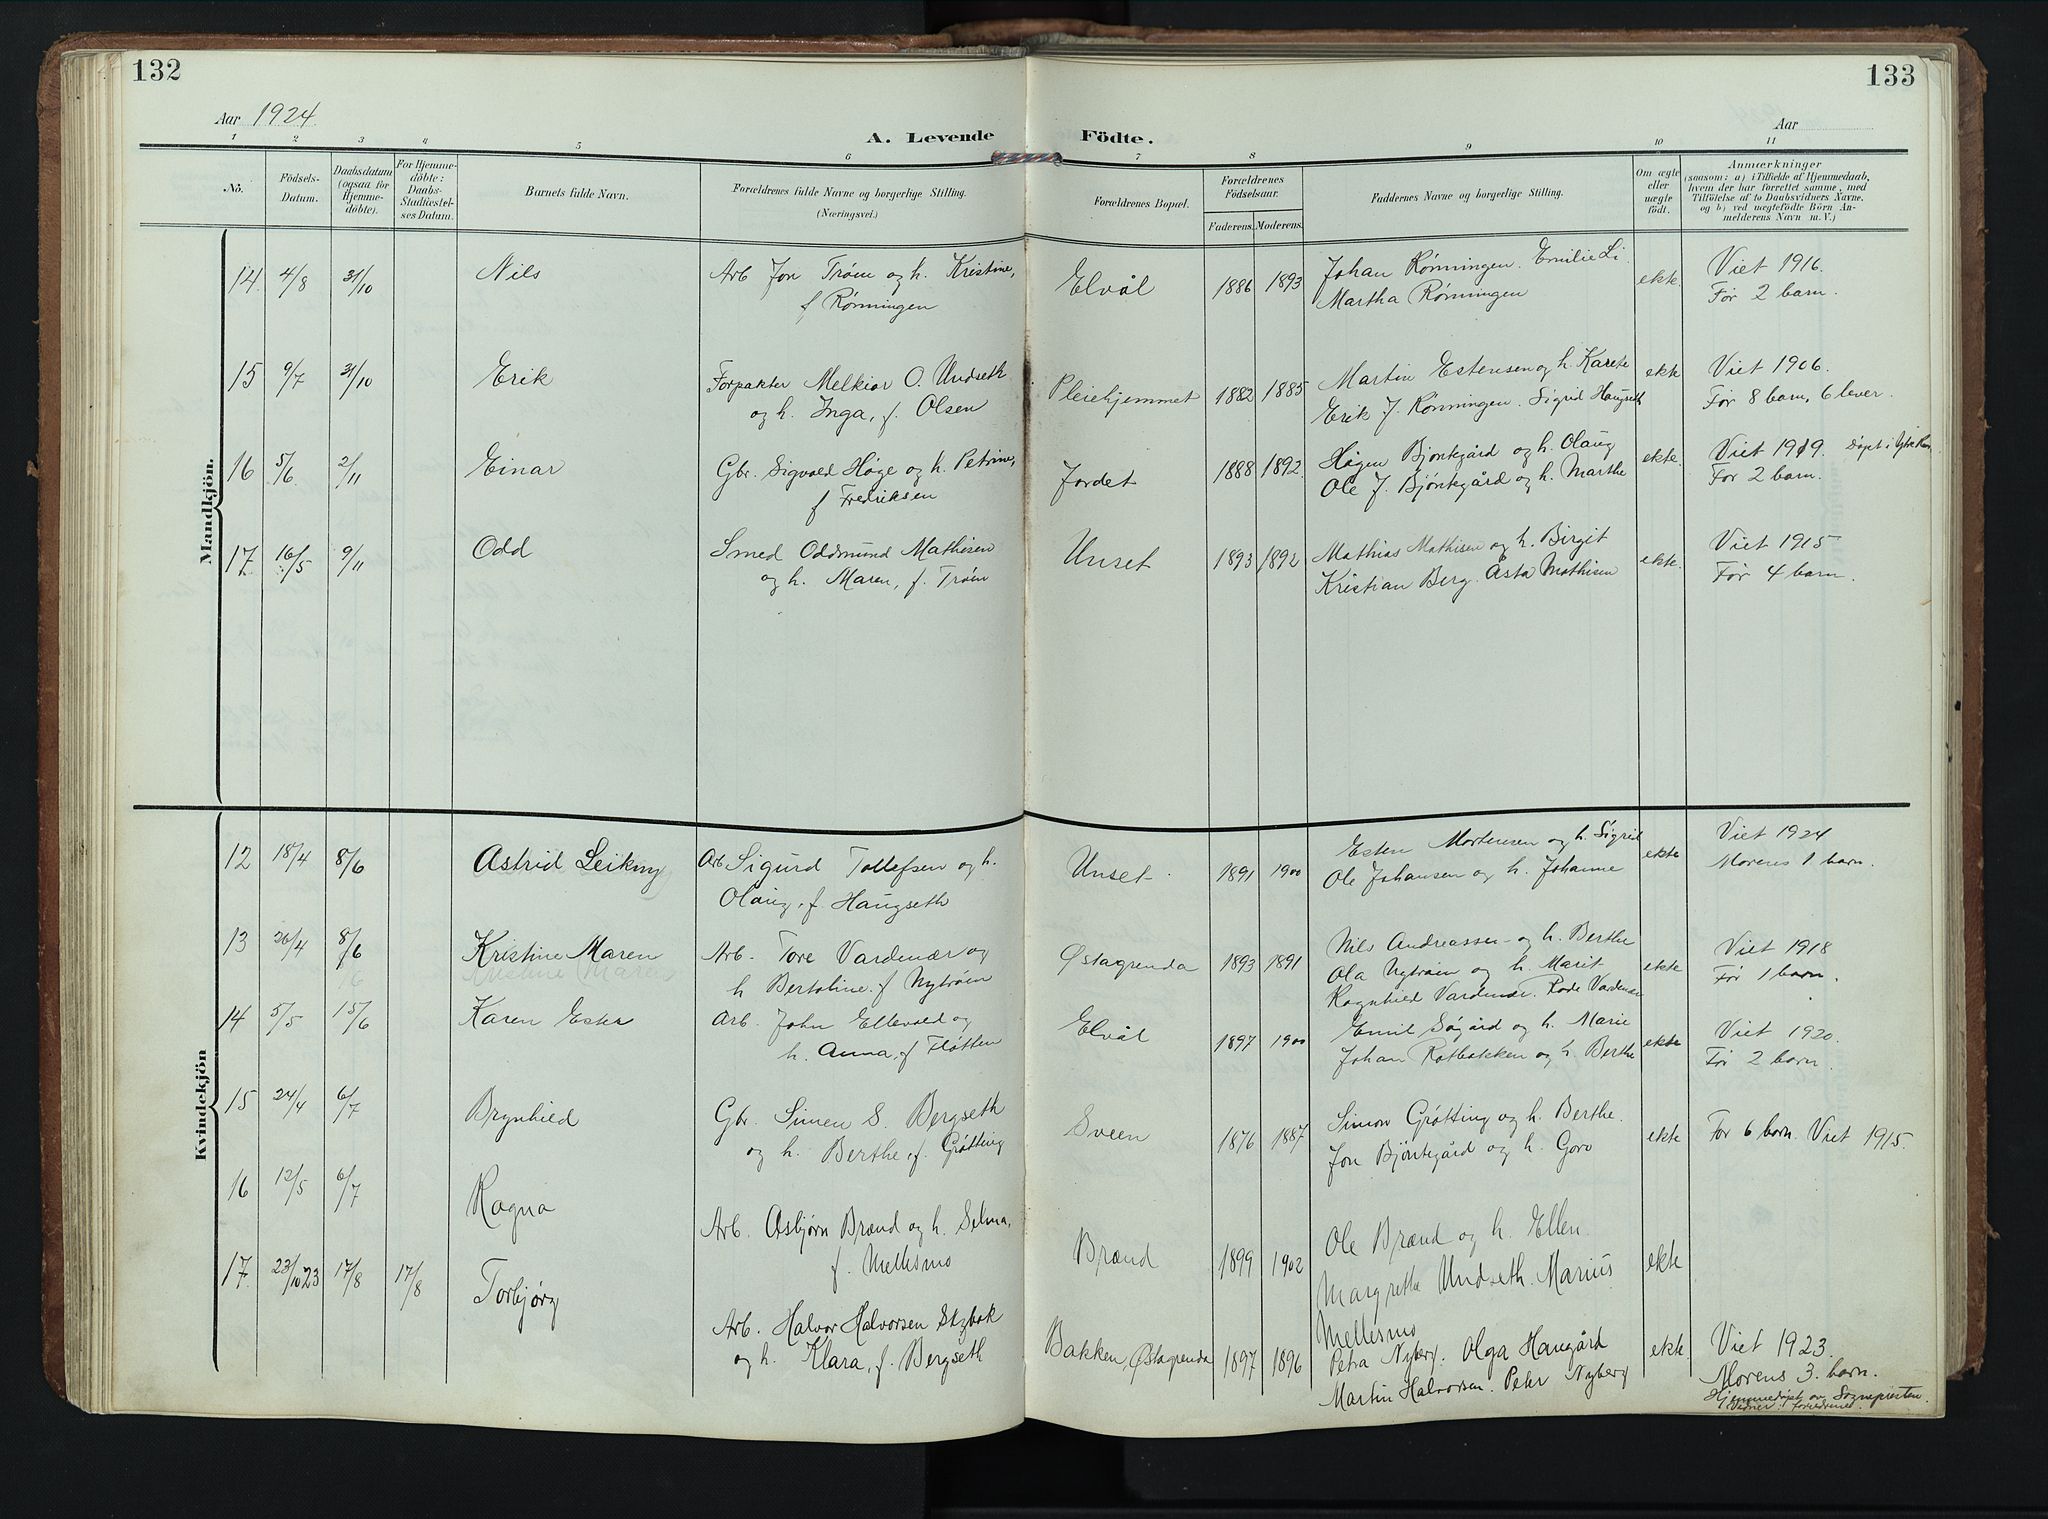 132
133
Aar 1924
Aar
A. Levende Födte.
1 2 3 4 5 6 7 8 9 10 11
No.
Födsels-Datum.
Daabsdatum (ogsaa for Hjemme-döbte).
For Hjemme-döbte: Daabs-Stadfæstel-ses Datum.
Barnets fulde Navn.
Forældrenes fulde Navne og borgerlige Stilling.
(Næringsvei.)
Forældrenes Bopæl.
Forældrenes Födselsaar.
Faderens. Moderens.
Faddernes Navne og borgerlige Stilling.
Om ægte eller uægte født.
Anmærkninger
(saasom: a) i Tilfælde af Hjemmedaab, hvem der har forrettet samme, med Tilföielse af to Daabsvidners Navne, og b) ved uægtefödte Börn An-melderens Navn m. V.)
Mandkjön.
14 4/8 31/10 Nils Arb Jon Trøen og h. Kristine, Elvål 1886 1893 Johan Rønningen. Emilie Li. ekte. Viet 1916.
f Rønningen Martha Rønningen Før 2 barn.
15 9/7 31/10 Erik Forpakter Melkior O. Undseth Pleiehjemmet 1882 1885 Martin Estensen og h. Karete ekte Viet 1906.
og h. Inga, f. Olsen Erik J. Rønningen. Sigrid Haugseth Før 8 barn, 6 lever.
16 5/6 2/11 Einar Gbr. Sigvald Høge og h. Petrine, Jordet 1888 1892 Høgen Bjøntegård og h. Olaug ekte. Viet 1919. Døpt i
f Fredriksen Ole J. Bjøntegård og h. Marthe Før 2 barn.
17. 16/5 9/11 Odd Smed Oddmund Mathisen Unset 1893 1892 Mathias Mathisen og h. Birgit ekte. Viet 1915
og h. Maren, f. Trøen Kristian Berg. Asta Mathisen Før 4 barn.
Kvindekjön
12 18/4 8/6 Astrid Leikny Arb. Sigurd Tollefsen og h. Unset. 1891 1900 Esten Mortensen og h. Sigrid ekte Viet 1924
Olaug, f. Haugseth Ole Johansen og h. Johanne Morens 1 barn.
13 26/4 8/6 Kristine Maren Arb. Tore Vardenær og Østagrenda 1893 1891 Nils Andreassen og h. Berthe ekte Viet 1918
h Bertoline. f Nytrøen Ola Nytrøen og h. Marit Før 1 barn.
Ragnhild Vardenær.
14 5/5 15/6 Karen Ester Arb. John Ellevold og Elvål 1897 1900 Emil Søgård og h. Marie ekte Viet 1920.
h. Anna, f Fløtten Johan Rotbakken og h Berthe Før 2 barn
15 24/4 6/7 Brynhild Gbr. Simen S. Bergseth Sveen 1876 1887 Simon Grøtting og h. Berthe. ekte For 6 barn. Viet 1915.
og h. Berthe, f. Grøtting Jon Bjøntegård og h. Goro
16 12/5 6/7 Ragna Arb. Asbjørn Brænd og h. Selma, Brænd 1899 1902 Ole Brænd og h. Ellen. ekte
f. Mellesmo Margrethe Undseth. Marius
Mellesmo
17. 23/10 23 17/8 17/8 Torbjørg Arb. Halvor Halvorsen Bakken, Østagrenda 1897 1896 Petra Nyberg. Olga Haugård ekte. Viet 1923.
og h. Klara, f. Bergseth Martin Halvorsen. Peter Nyberg Morens 3. barn.
Hjemmedøpt av Sognepresten.
Vidner: foreldrene.